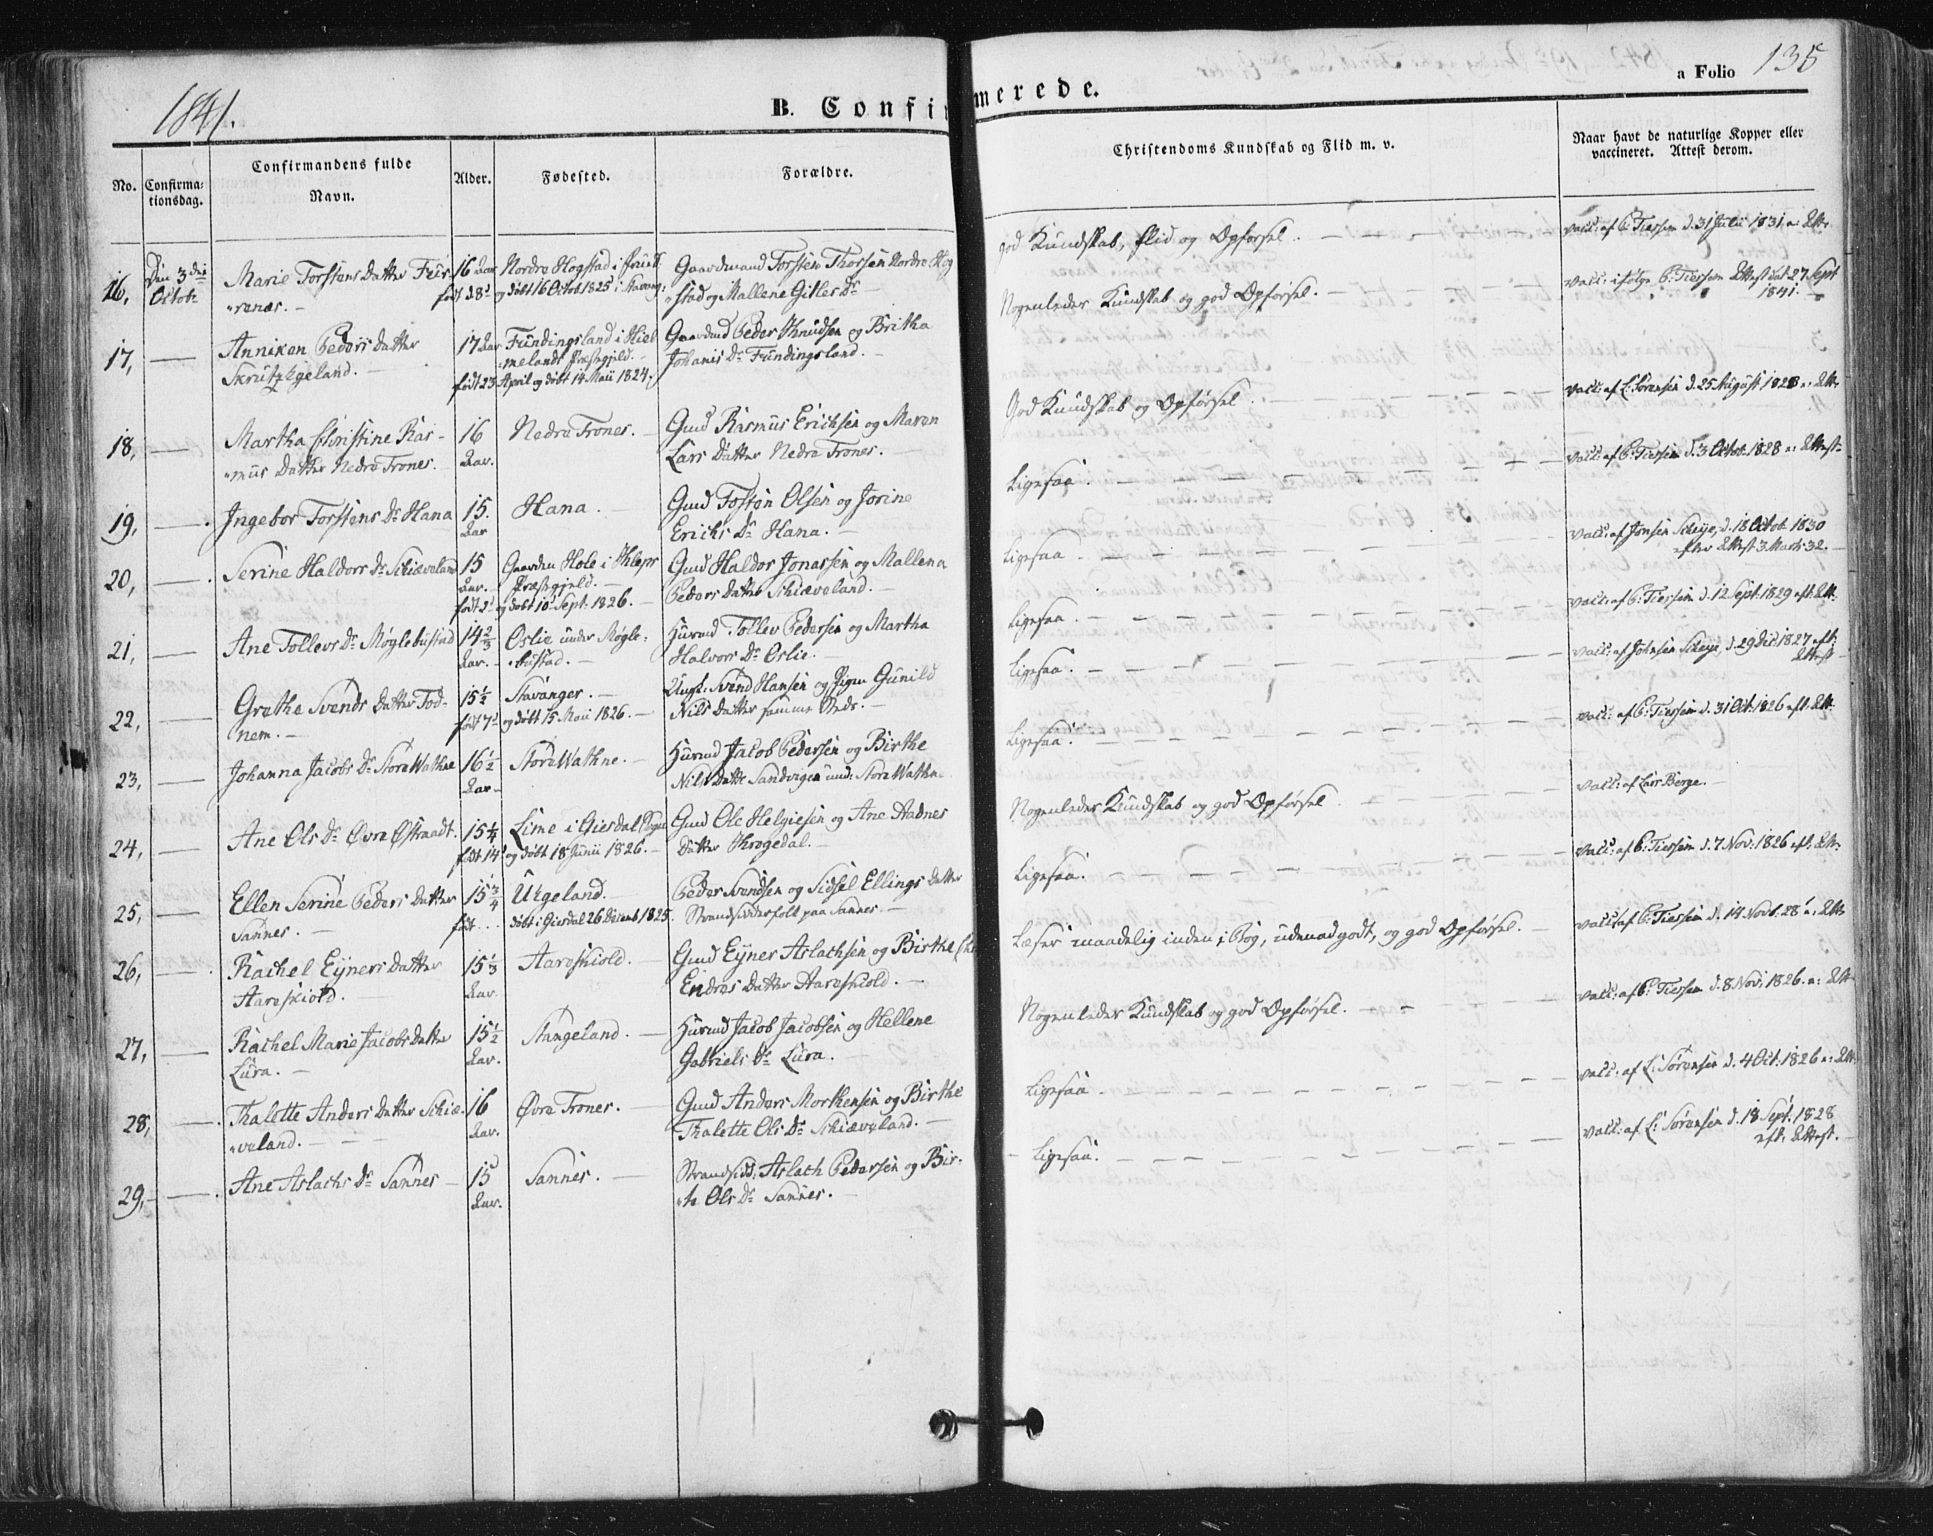 1841.
B. Confirmerede.
a Folio 135
No.
Confirmationsdag.
Confirmandens fulde Navn.
Alder.
Fødested.
Forældre.
Christendoms Kundskab og Flid m. v.
Naar havt de naturlige Kopper eller vaccineret. Attest derom.
16, Den 3die Octob. Marie Torstens Datter 16 Aar Nordre Hogstad i
født 28 og døbt 16 Octob. 1825 i
Gaardmand Torsten Thorsen Nordre Hog-
stad og Mallene Gitles Dr
God Kundskab, Flid og Opførsel.
vacc: af C: Tiersen d. 31 Julii 1831 e: Att.
17, Anniken Peders Datter 17 Aar Fundingsland i Hiel-
melands Præstegjeld.
født 23 April og døbt 14 Maii 1824.
Gaardmd Peder Knudsen og Britha
Johanis Dr Fundingsland.
Nogenledes Kundskab og god Opførsel.
vacc: ifølge C: Tiersen Attest dat 27 Sept
1841.
18, Martha Christine Ras-
mus Datter Nedre Trones. 16 Aar. Nedre Trones.
Gmd Rasmus Erichsen og Maren
Lars Datter Nedre Trones.
God Kundskab og Opførsel.
vacc: af L: Sørensen d. 25 August 1828 e: Att.
19, Ingebor Torstens Dr Hana 15. Aar Hana.
Gmd Tosten Olsen og Jorine
Erichs Dr Hana.
Ligesaa.
vacc: af C: Tiersen d. 3 Octob. 1828 e: Attest
20, Serine Haldors Dr Schiæveland 15 Aar. Gaarden Hole i Klepps
Præstegjeld.
født 2 og døbt 10 Sept. 1826.
Gmd Haldor Jonassen og Mallena
Peders Datter Schiæveland.
Ligesaa
vacc: af Jonsen Scheje, d. 18 Octob 1830
efter Attest 3 Marts 32.
21, Ane Tollevs Dr Møglebustad 14 2/3 Aar. Oslie under Møgle-
bustad.
Husmd Tollev Pedersen og Martha
Halvors Dr Oslie.
Ligesaa.
vacc: af C: Tiersen d. 12 Sept. 1829 eft. Att.
22, Grethe Svends Datter Tod-
nem. 15 1/2 Stavanger.
født 7 og døbt 15 Maii 1826.
Ungk: Svend Hansen og Pigen Gunild
Nils Datter samme Steds.
Ligesaa.
vacc: af Johnsen Scheje, d. 29 Dec 1827 eft:
Attest
23, Johanna Jacobs Dr Store Wathne 16 1/2 Aar Store Wathne.
Husmd Jacob Pedersen og Birthe
Nils Datte Sandvigen und: Store Wathn
Ligesaa.
vacc: af C: Tiersen d. 31 Oct. 1826 eft. Att.
24, Ane Ols Dr Øvre Østraadt. 15 1/4 Lime i Giesdal Sogn
født 14 og døbt 18 Junii 1826.
Gmd Ole Helgiesen og Ane Aadnes
Datter Krogedal.
Nogenledes Kundskab og god Opførsel
vacc: af Lars Berge.
25, Ellen Serine Peders Datter
Sannes. 15 3/4 Uegeland.
født ... døbt i Giesdal 26 Decemb 1825.
Peder Svendsen og Sidsel Ellings Datter
Strandsidderfolk paa Sannes.
Ligesaa.
vacc: af C: Tiersen d. 7 Nov. 1826 eft: Att.
26, Rachel Eyners Datter
Aareskiold. 15 1/3 Aar. Aareskiold.
Gmd Eyner Aslachsen og Birthe
Endres Datter Aareskiold.
Læser maadelig inden i Bog, udenad godt, og god Opførsel.
vacc: af C: Tiersen d. 14 Novb. 28 e: Att
27, Rachel Marie Jacobs Datter
Lura. 15 1/2 Aar. Stangeland.
Husmd Jacob Jacobsen og Hellene
Gabriels Dr Lura.
Nogenledes Kundskab og god Opførsel.
vacc: af C: Tiersen d. 8 Nov: 1826. e: Att
28, Thalette Anders Datter Schiæ-
veland. 16 Aar. Øvre Trones.
Gmd Anders Morthensen og Birthe
Thalette Ols Dr Schiæveland.
Ligesaa
vacc: af L: Sørensen d. 4 Oct: 1826 e: Att
29, Ane Aslachs Dr Sannes 15 Aar. Sannes.
Strandsidd: Aslach Pedersen og Bir-
te Ols Dr Sannes.
Ligesaa.
vacc: af L: Sørensen d. 18 Sept. 1828
eft: Attest.